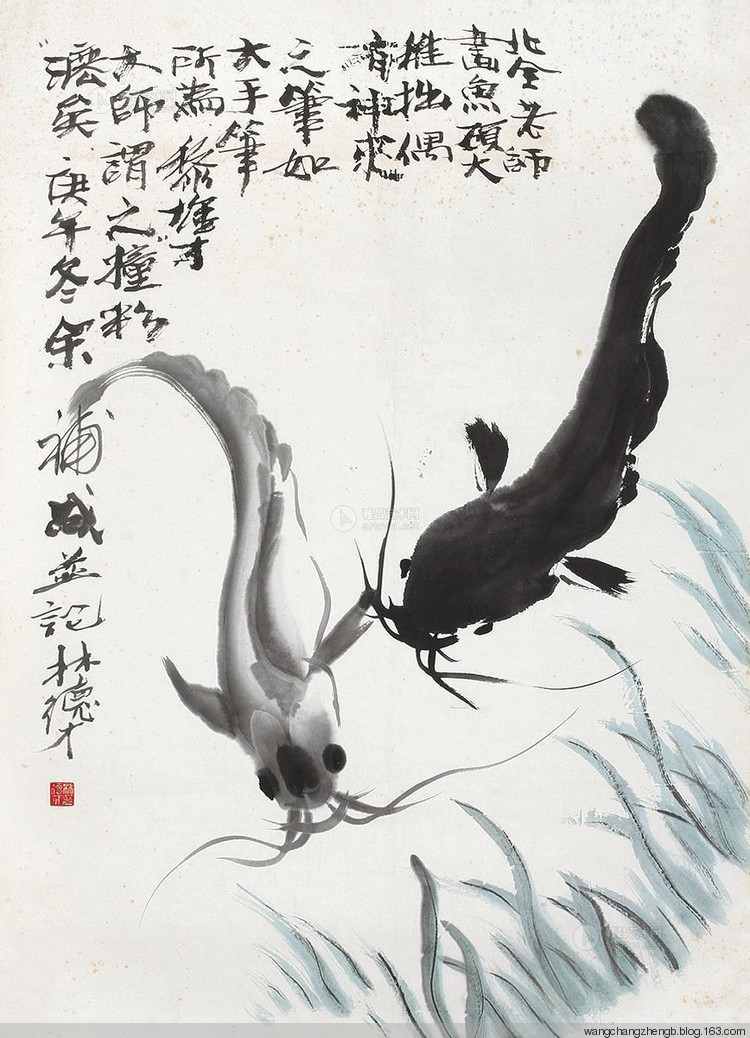 北全老師
畫魚碩大
雄拙偶
有神來
之筆如
大手筆
所為黎雄才
大師謂之撞粉
矣庚午冬余
補成並記林德才
wangchangzhengb.blog.163.com